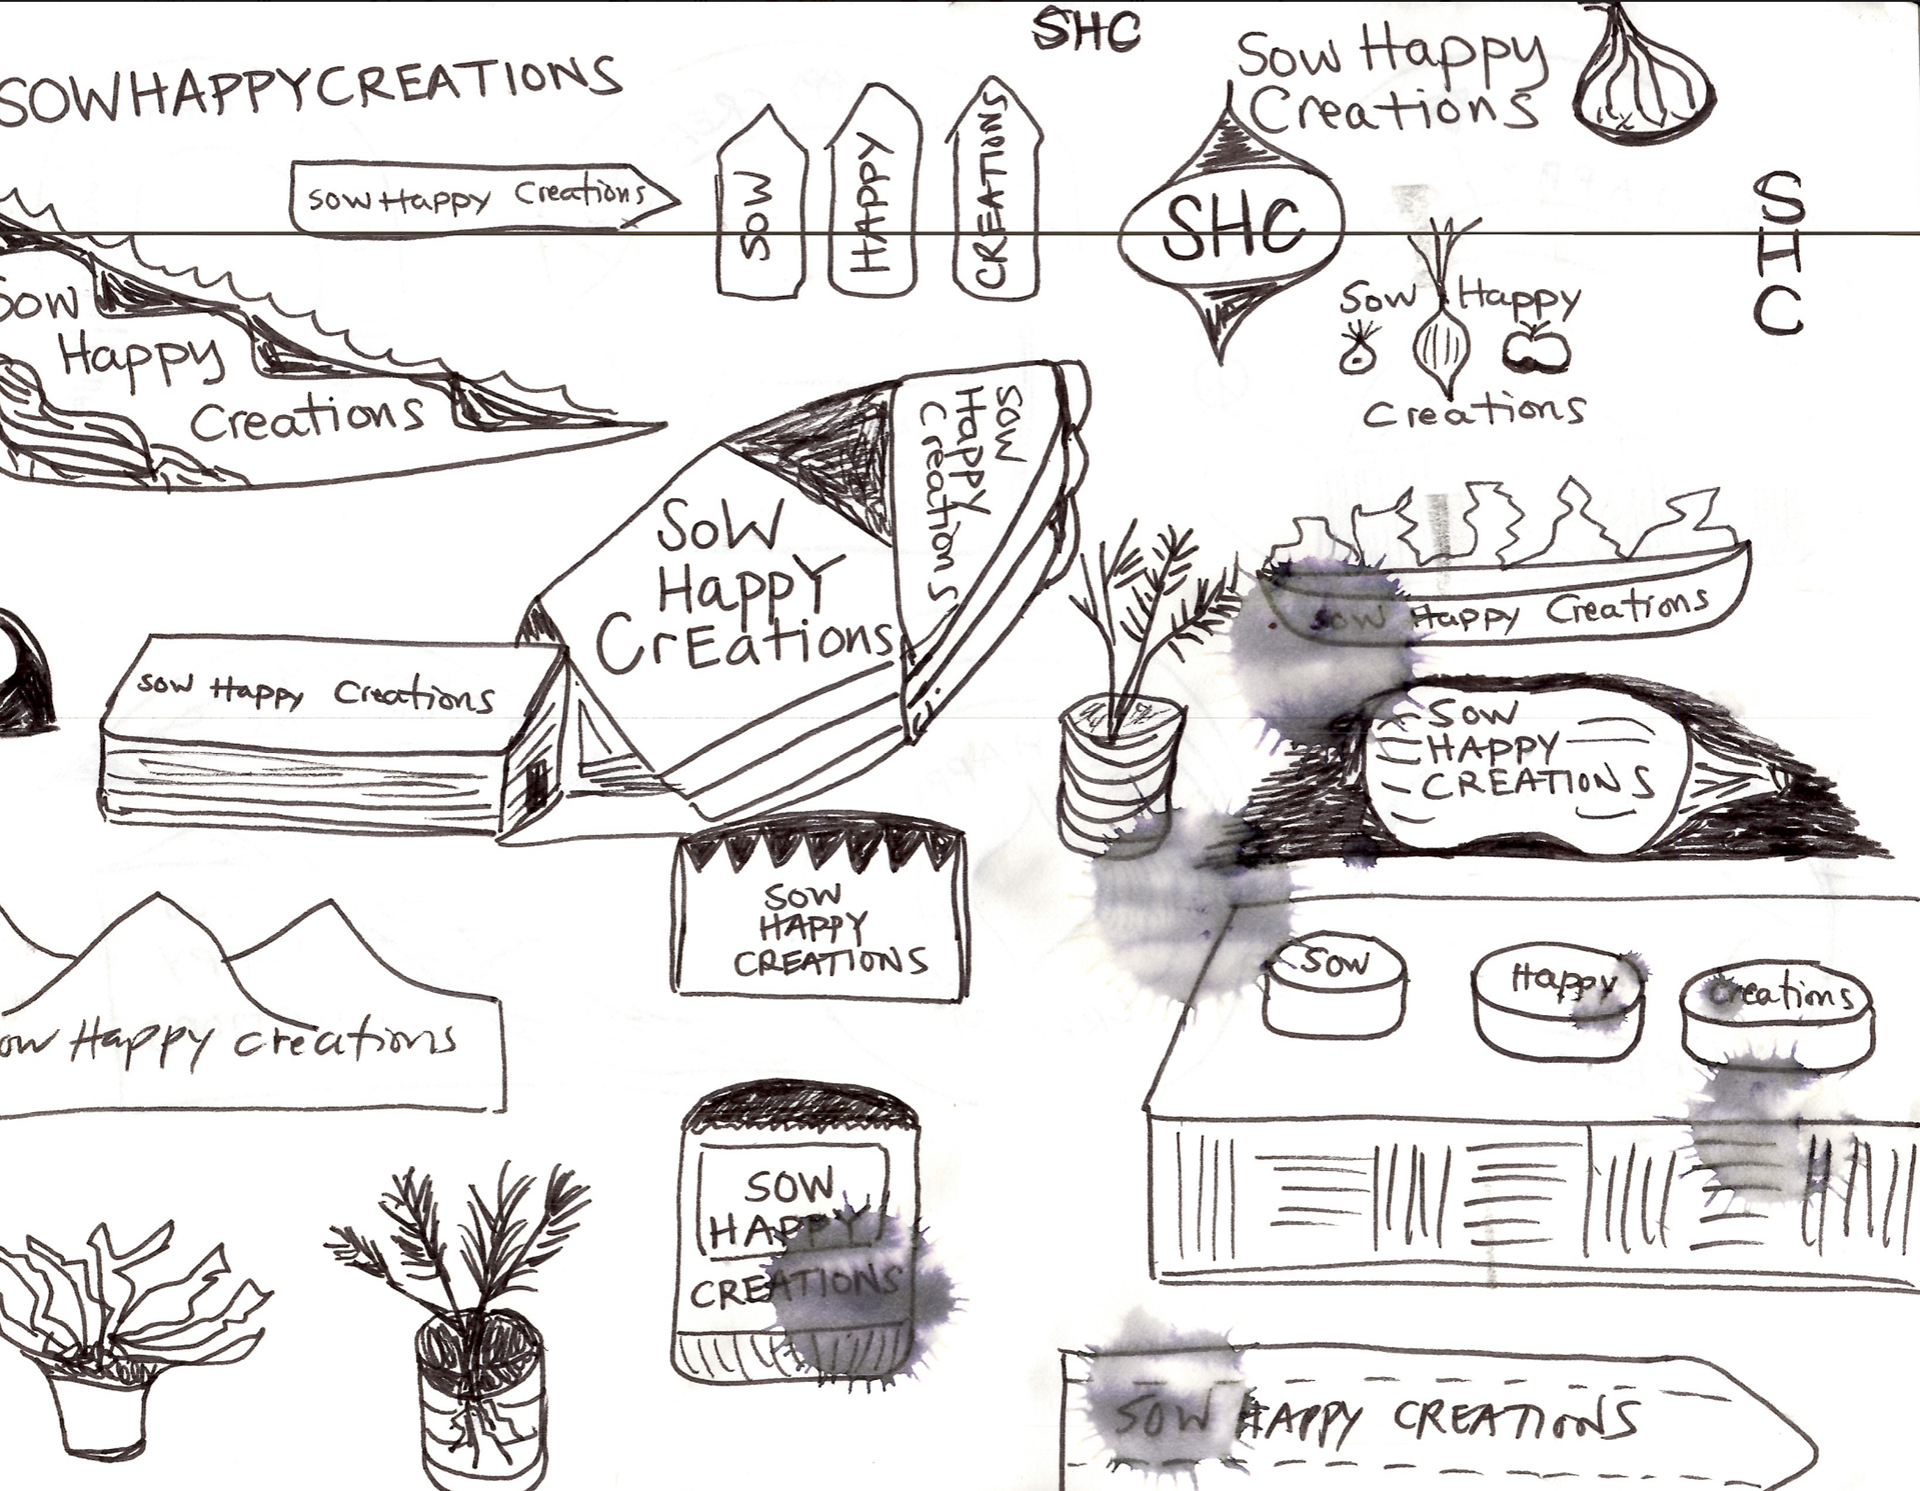 SHC
SOWHAPPYCREATIONS
Sow Happy
Creations
sow Happy Creations
SOW
HAPPY
CREATIONS
SHC
S
H
C
Sow Happy
Creations
Sow
Happy
Creations
Sow
Happy
Creations
SoW
HappY
CrEations
sow Happy Creations
sow Happy Creations
SOW
HAPPY
CREATIONS
SOW
HAPPY
CREATIONS
Sow
Happy
Creations
ow Happy creations
SOW
HAPPY
CREATIONS
SOW HAPPY CREATIONS